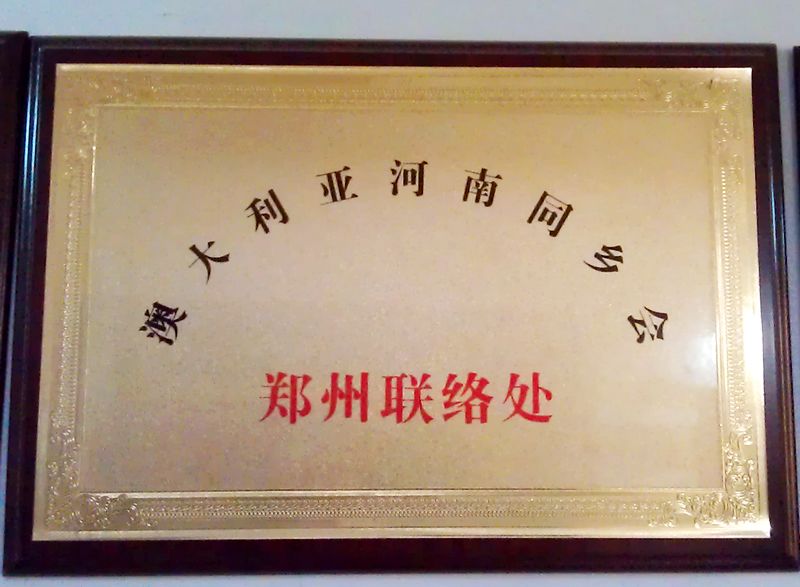 澳大利亚河南同乡会
郑州联络处